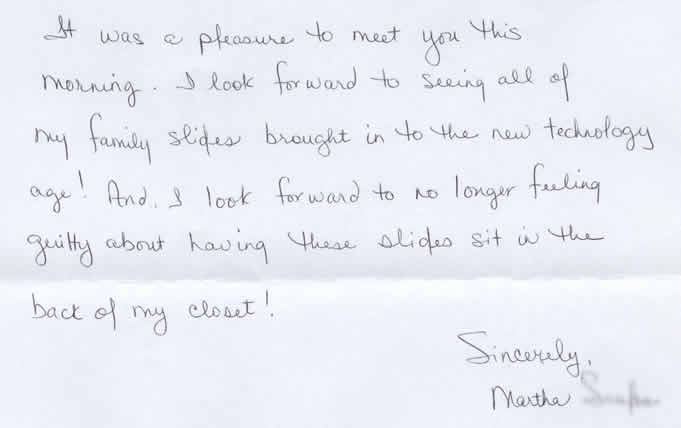 It was a pleasure to meet you this
morning. I look forward to seeing all of
my family slides brought in to the new technology
age! And, I look forward to no longer feeling
guilty about having these slides sit in the
back of my closet!
Sincerely,
Martha